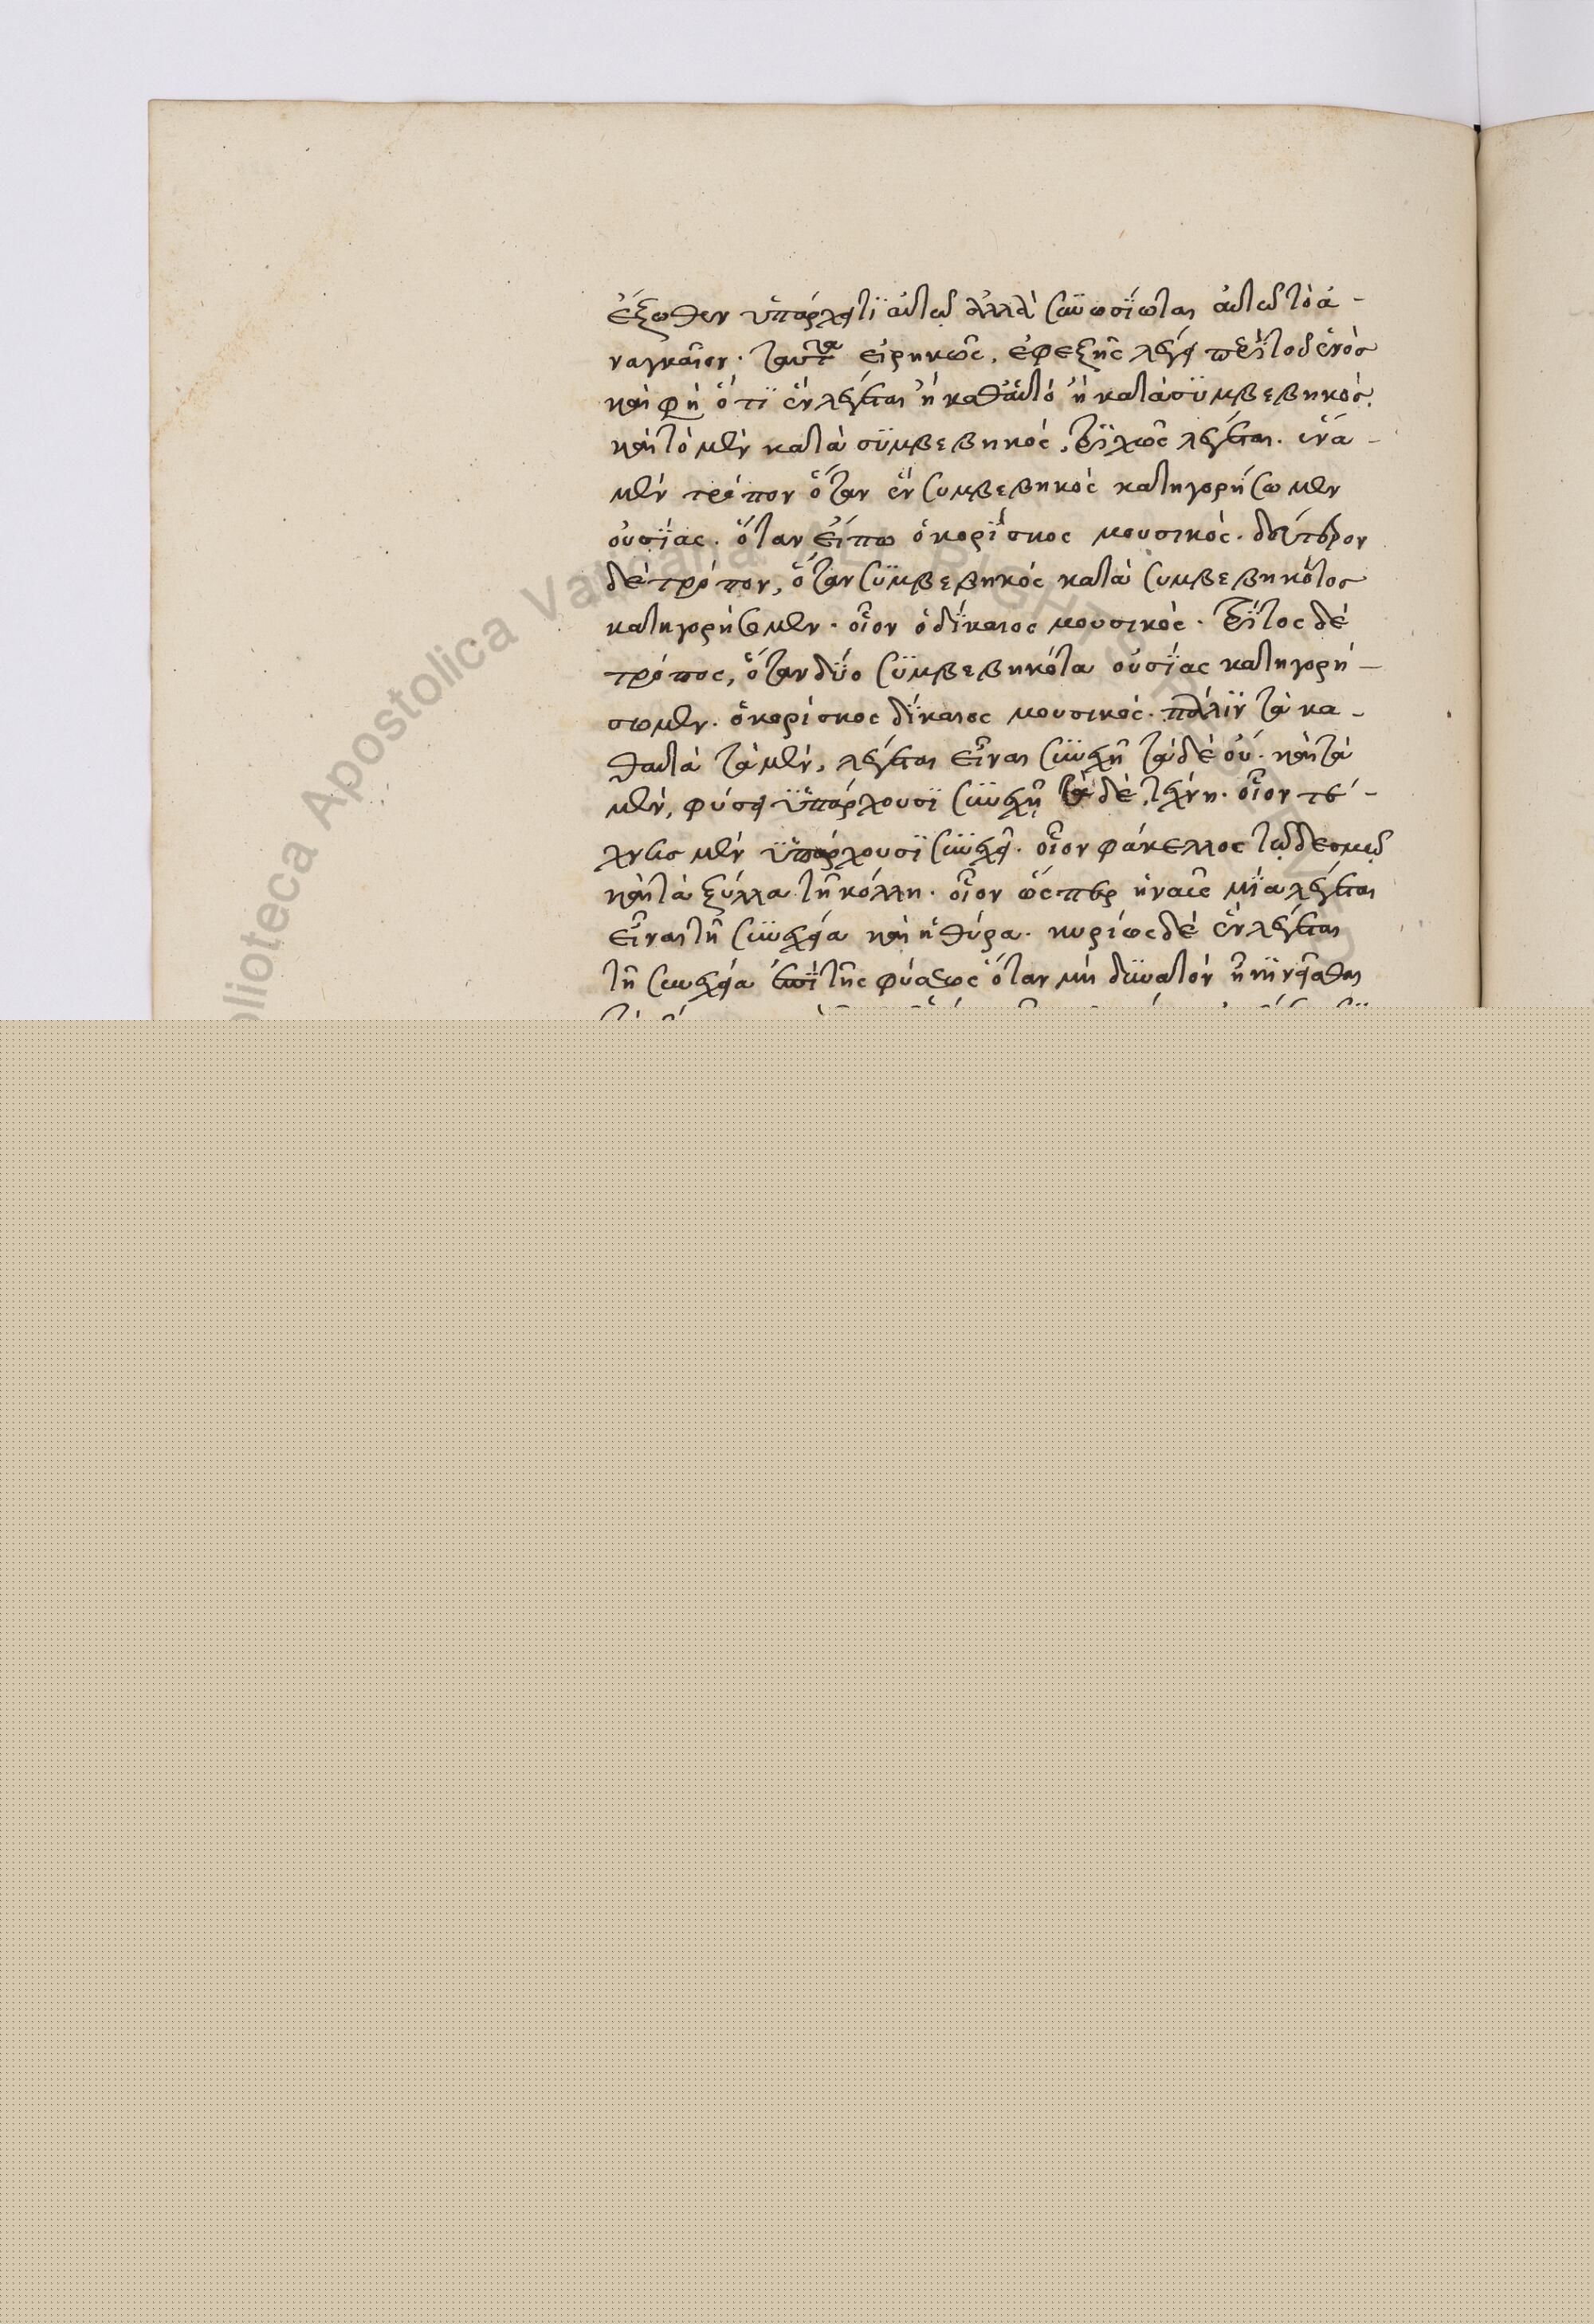 ἔξωθεν ὑπάρχει τι αὐτῶ ἀλλὰ συνουσίωται αὐτῶ τὸ ἀ-
ναγκαῖον. ταῦτα εἰρηκὼς, ἐφεξῆς λέγει περὶ τοῦ ἑνός
καὶ φὴ ὅτι ἓν λέγεται ἢ καθ' αὑτό ἢ κατὰ συμβεβηκός.
καὶ τὸ μὲν κατὰ συμβεβηκός, τριχῶς λέγεται. ἕνα
μὲν τρόπον ὅταν ἓν συμβεβηκός κατηγορήσωμεν
οὐσίας. ὅταν εἴπω ὁ κορίσκος μουσικός. δεύτερον
δὲ τρόπον, ὅταν συμβεβηκός κατὰ συμβεβηκότος
κατηγορήσωμεν. οἷον ὁ δίκαιος μουσικός. τρίτος δὲ
τρόπος, ὅταν δύο συμβεβηκότα οὐσίας κατηγορή-
σωμεν. ὁ κορίσκος δίκαιος μουσικός. πάλιν τὰ κα-
θ' αὑτὰ τὰ μὲν, λέγεται εἶναι συνεχῆ τὰ δὲ οὔ. καὶ τὰ
μὲν, φύσει ὑπάρχουσι συνεχῆ τὰ δὲ, τέχνη. οἷον τέ-
χνης μὲν ὑπάρχουσι συνεχῆ. οἷον φάκελλος τῶ δεσμῶ
καὶ τὰ ξύλλα τῆ κόλλη. οἷον ὥσπερ ἡ ναῦς μία λέγεται
εἶναι τῆ συνεχεία καὶ ἡ θύρα. κυρίως δὲ ἓν λέγεται
τῆ συνεχεία ἐπὶ τῆς φύσεως ὅταν μὴ δυνατὸν ἦ κινεῖσθαι
Biblioteca Apostolica Vaticana